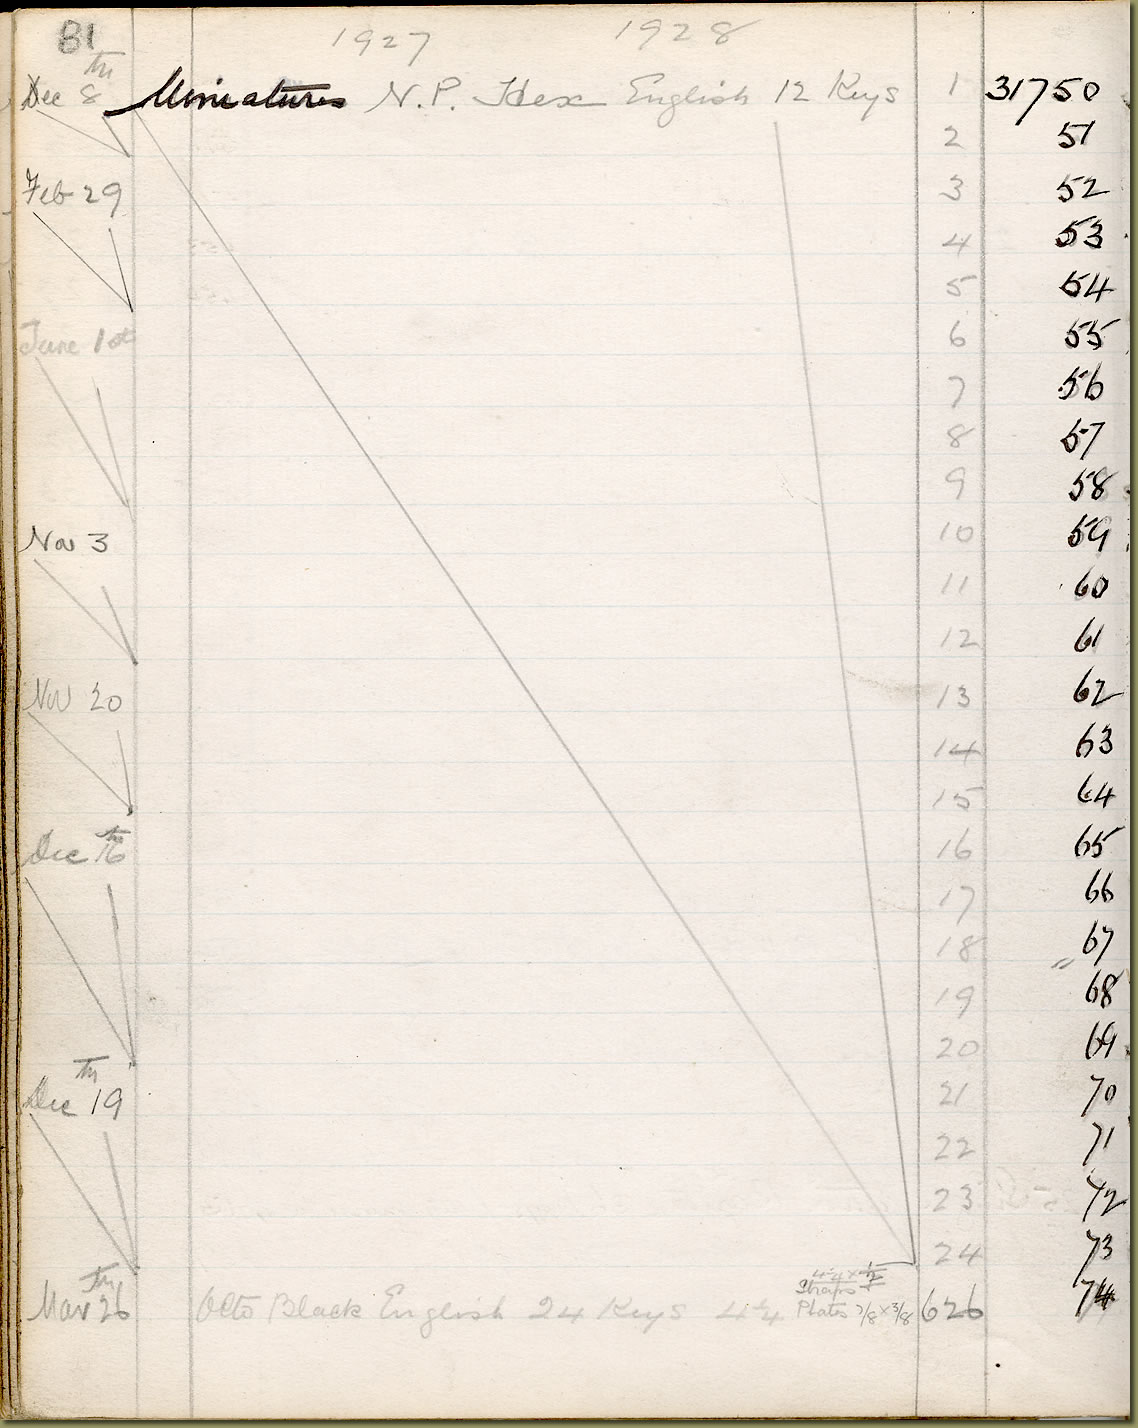 81 1927 1928
Dec 8th Miniatures N.P. Hex English 12 Keys 1 31750
2 51
Feb 29 3 52
4 53
5 54
June 1st 6 55
7 56
8 57
9 58
Nov 3 10 59
11 60
12 61
Nov 20 13 62
14 63
15 64
Dec 16th 16 65
17 66
18 67
19 68
20 69
Dec 19th 21 70
22 71
23 72
24 73
Mar 26th Octo Black English 24 Keys 4¼ Straps Plates 7/8 x 3/8 626 74